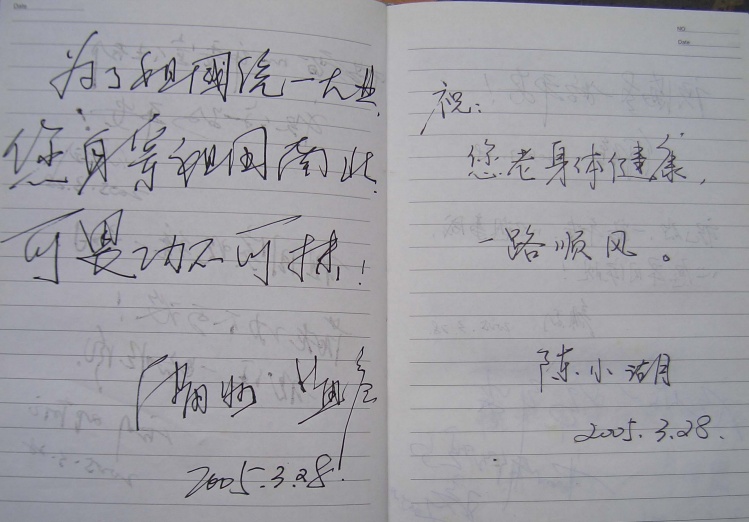 Date
为了祖国统一大业,
您身穿祖国南北.
可是功不可抹!
2005.3.28!
NO
Date
祝:
您老身体健康,
一路顺风。
陈小湖
2005.3.28.